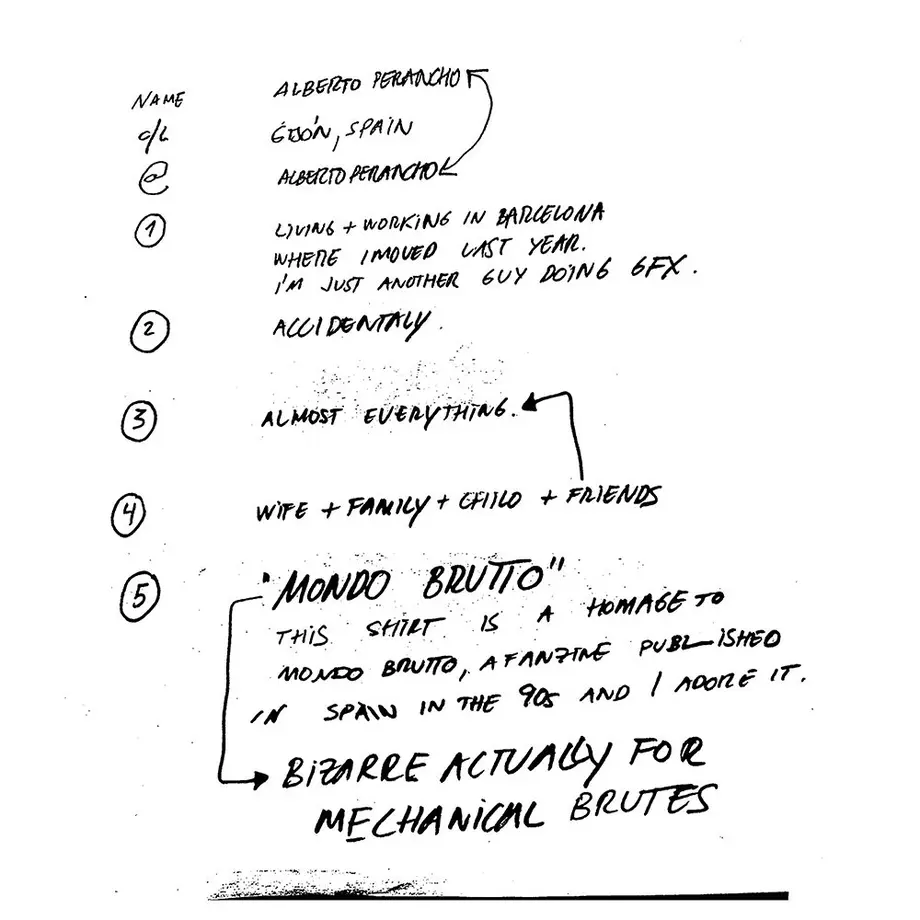 NAME ALBERTO PERANCHO
C/L GIJÓN, SPAIN
@ ALBERTOPERANCHO
1 LIVING + WORKING IN BARCELONA
WHERE I MOVED LAST YEAR.
I'M JUST ANOTHER GUY DOING GFX.
2 ACCIDENTALY.
3 ALMOST EVERYTHING.
4 WIFE + FAMILY + CHILD + FRIENDS
5 "MONDO BRUTTO"
THIS SHIRT IS A HOMAGE TO
MONDO BRUTTO, A FANZINE PUBLISHED
IN SPAIN IN THE 90s AND I ADORE IT.
BIZARRE ACTUALLY FOR
MECHANICAL BRUTES